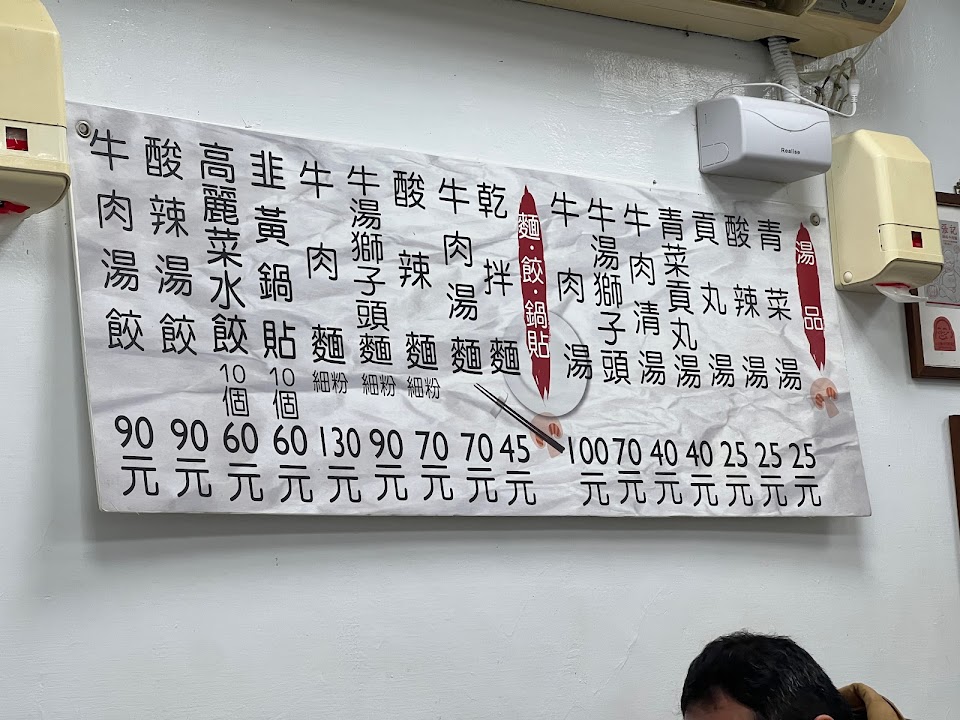 湯品
青菜湯 25元
酸辣湯 25元
貢丸湯 25元
青菜貢丸湯 40元
牛肉清湯 40元
牛湯獅子頭 70元
牛肉湯 100元
麵·餃·鍋貼
乾拌麵 45元
牛肉湯麵 70元
酸辣麵 細粉 70元
牛湯獅子頭麵 細粉 90元
牛肉麵 細粉 130元
韭黃鍋貼 10個 60元
高麗菜水餃 10個 60元
酸辣湯餃 90元
牛肉湯餃 90元